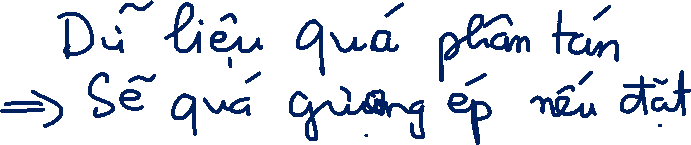 Dữ liệu quá phân tán
=> Sẽ quá gượng ép nếu đặt